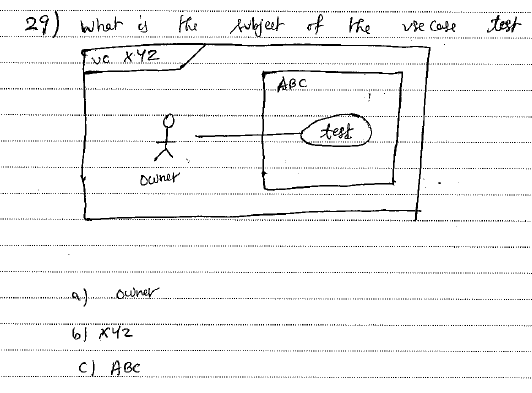 29) What is the subject of the use case test
uc XYZ
ABC
test
owner
a) owner
b) XYZ
c) ABC